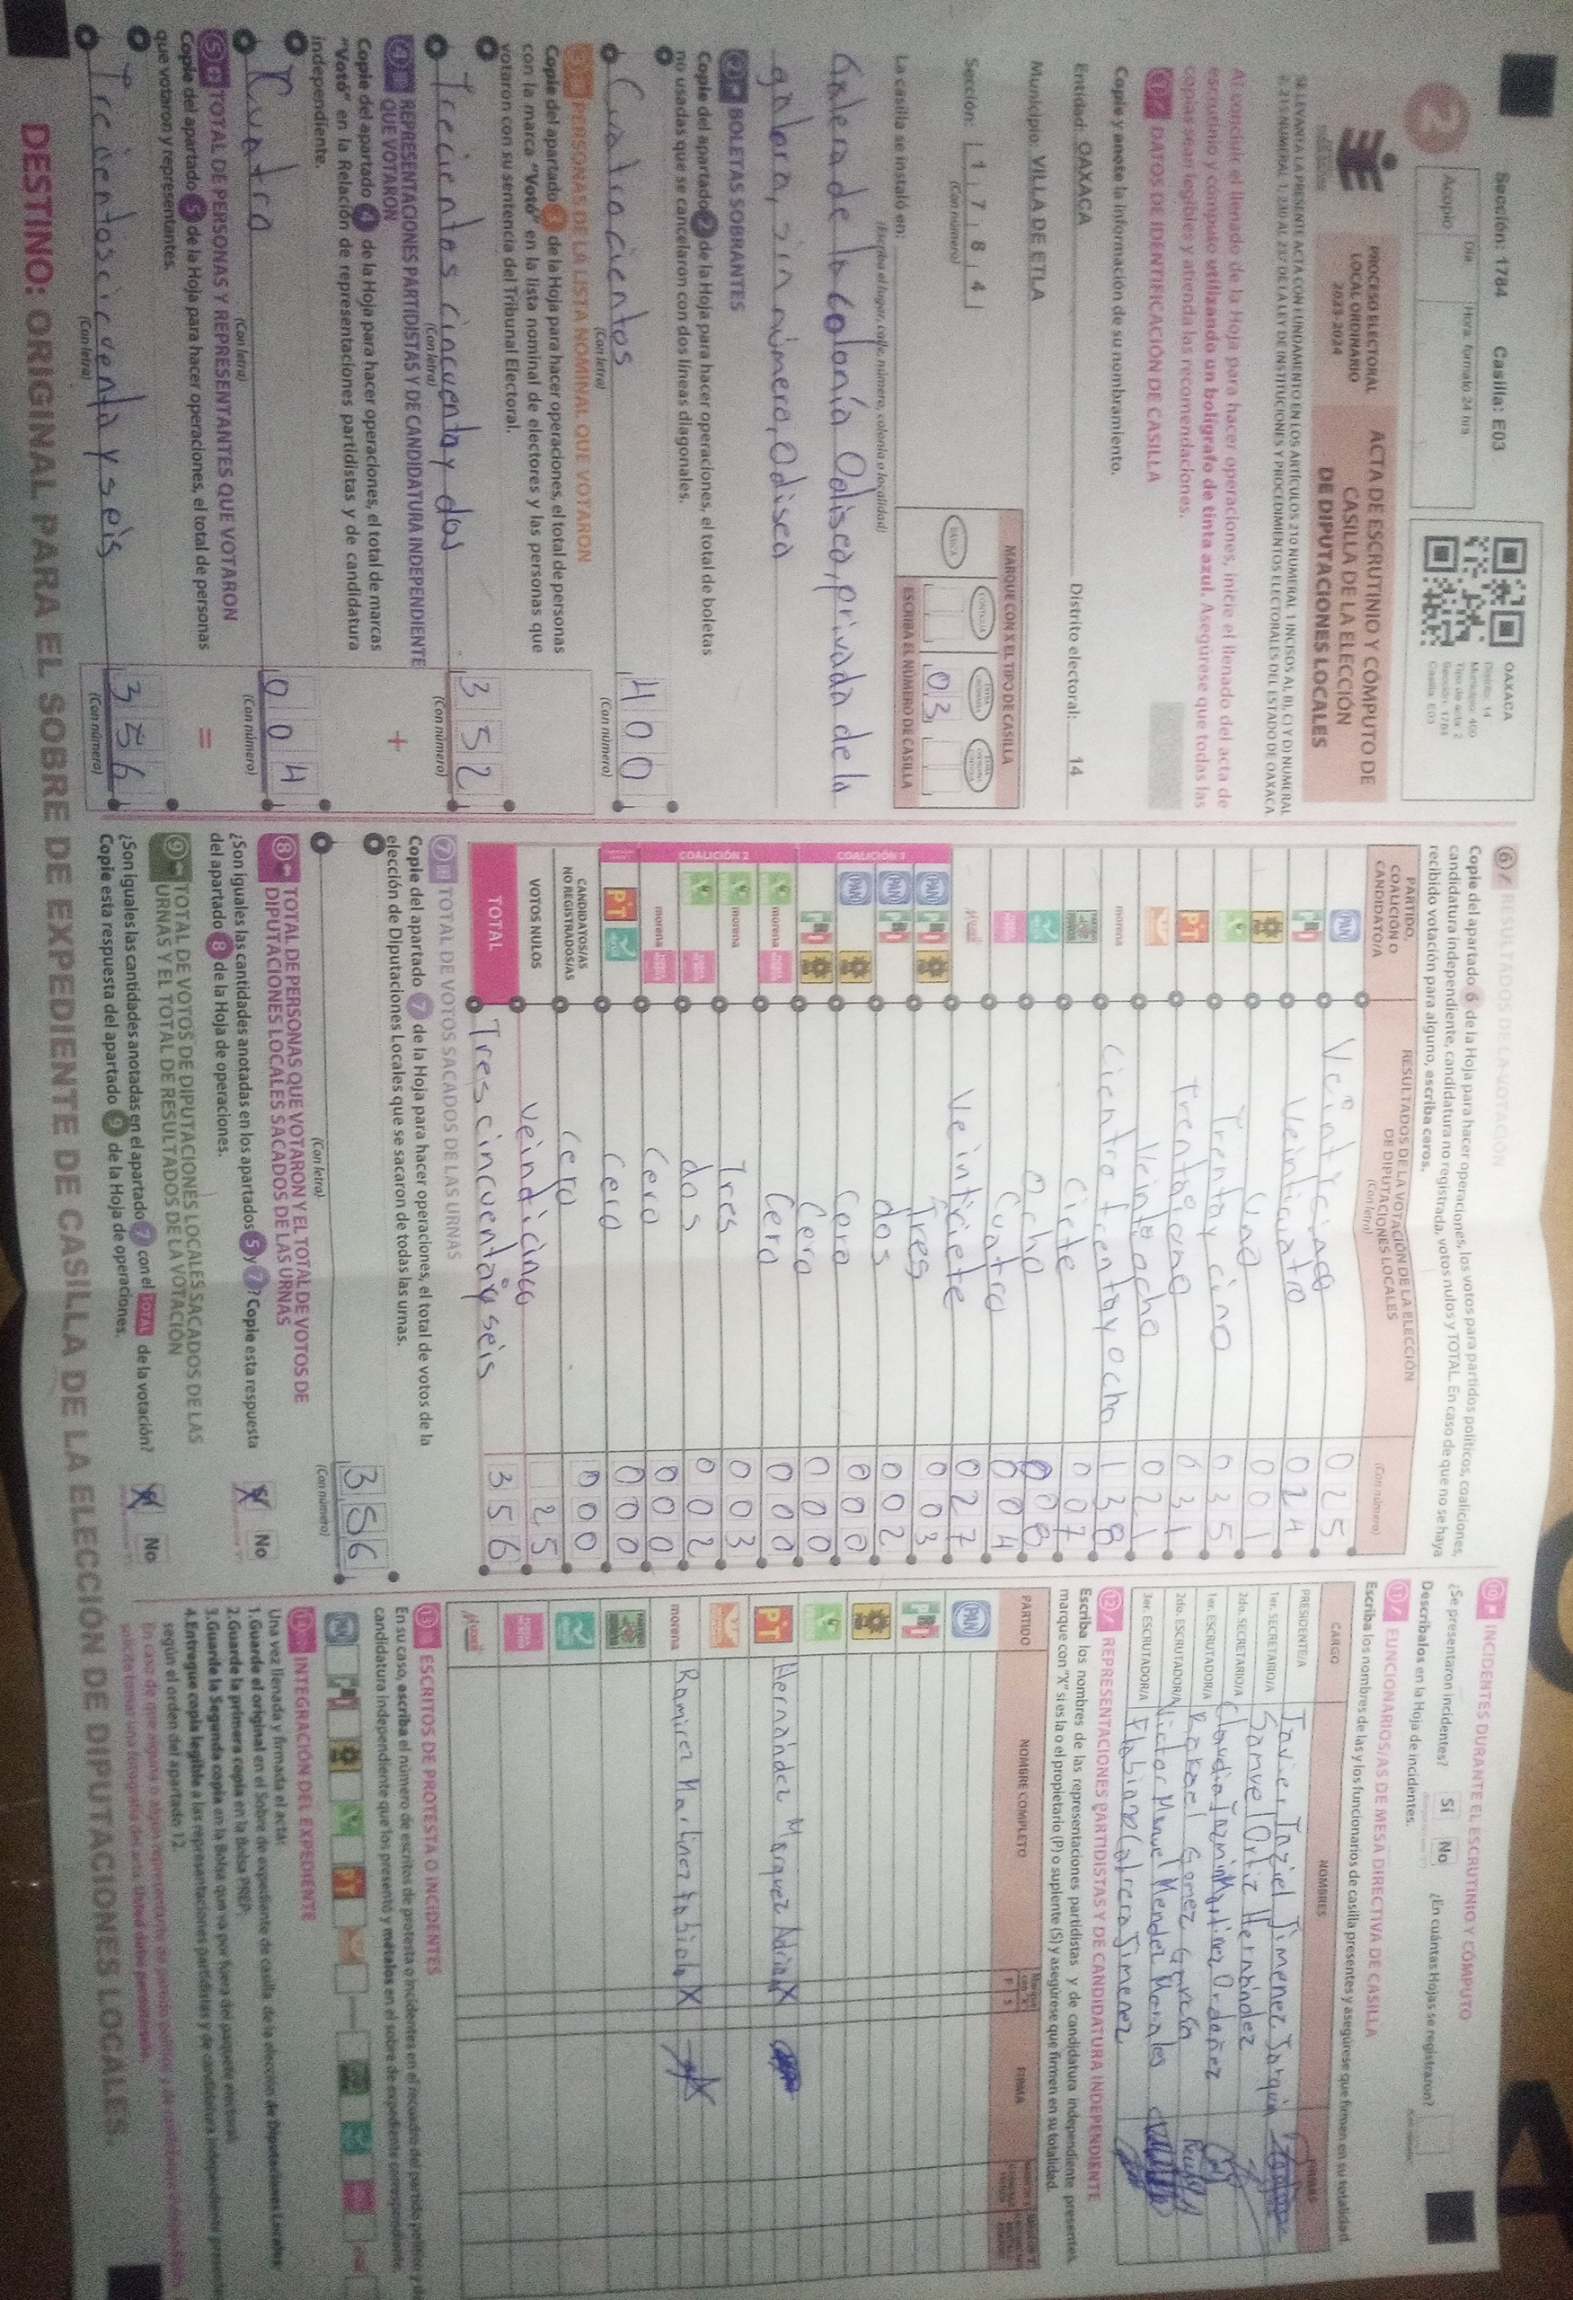 Sección: 1784 Casilla: E03
Día Hora formato 24 hrs
Acopio
2
OAXACA
Distrito: 14
Municipio: 400
Tipo de acta: 2
Sección: 1784
Casilla: E03
PROCESO ELECTORAL
LOCAL ORDINARIO
2023-2024
ACTA DE ESCRUTINIO Y CÓMPUTO DE
CASILLA DE LA ELECCIÓN
DE DIPUTACIONES LOCALES
SE LEVANTA LA PRESENTE ACTA CON FUNDAMENTO EN LOS ARTÍCULOS 210 NUMERAL 1 INCISOS A), B), C) Y D) NUMERAL
2, 215 NUMERAL 1, 230 AL 237 DE LA LEY DE INSTITUCIONES Y PROCEDIMIENTOS ELECTORALES DEL ESTADO DE OAXACA
Al concluir el llenado de la Hoja para hacer operaciones, inicie el llenado del acta de
escrutinio y cómputo utilizando un bolígrafo de tinta azul. Asegúrese que todas las
copias sean legibles y atienda las recomendaciones.
1 DATOS DE IDENTIFICACIÓN DE CASILLA
Copie y anote la información de su nombramiento.
Entidad: OAXACA Distrito electoral: 14
Municipio: VILLA DE ETLA
Sección: 1 7 8 4
(Con número)
MARQUE CON X EL TIPO DE CASILLA
BÁSICA CONTIGUA
0 3
ESCRIBA EL NÚMERO DE CASILLA
La casilla se instaló en:
(Escriba el lugar, calle, número, colonia o localidad)
Galera de la colonia Odisea, privada de la
galera, sin número, Odisea
2 BOLETAS SOBRANTES
Copie del apartado 2 de la Hoja para hacer operaciones, el total de boletas
no usadas que se cancelaron con dos líneas diagonales.
Cuatrocientos 4 0 0
(Con letra) (Con número)
3 PERSONAS DE LA LISTA NOMINAL QUE VOTARON
Copie del apartado 3 de la Hoja para hacer operaciones, el total de personas
con la marca "Votó" en la lista nominal de electores y las personas que
votaron con su sentencia del Tribunal Electoral.
Trecientos cincuenta y dos 3 5 2
(Con letra) (Con número)
4 REPRESENTACIONES PARTIDISTAS Y DE CANDIDATURA INDEPENDIENTE
QUE VOTARON
Copie del apartado 4 de la Hoja para hacer operaciones, el total de marcas
"Votó" en la Relación de representaciones partidistas y de candidatura
independiente.
+
Cuatro 0 0 4
(Con letra) (Con número)
5 TOTAL DE PERSONAS Y REPRESENTANTES QUE VOTARON
Copie del apartado 5 de la Hoja para hacer operaciones, el total de personas
que votaron y representantes.
=
Trecientos cincuenta y seis 3 5 6
(Con letra) (Con número)
6 RESULTADOS DE LA VOTACIÓN
Copie del apartado 6 de la Hoja para hacer operaciones, los votos para partidos políticos, coaliciones,
candidatura independiente, candidatura no registrada, votos nulos y TOTAL. En caso de que no se haya
recibido votación para alguno, escriba ceros.
PARTIDO,
COALICIÓN O
CANDIDATO/A
RESULTADOS DE LA VOTACIÓN DE LA ELECCIÓN
DE DIPUTACIONES LOCALES
(Con letra)
(Con número)
PAN Veinticinco 0 2 5
PRI Veinticuatro 0 2 4
uno 0 0 1
Trenta y cinco 0 3 5
PT Trentaiuno 0 3 1
Veintiocho 0 2 1
morena Ciento trenta y ocho 1 3 8
Ciete 0 0 7
Ocho 0 0 8
Cuatro 0 0 4
Veinticiete 0 2 7
COALICIÓN 1
PAN PRI Tres 0 0 3
PAN PRI dos 0 0 2
PAN Cero 0 0 0
PRI Cero 0 0 0
COALICIÓN 2
morena Cero 0 0 0
morena Tres 0 0 3
dos 0 0 2
morena Cero 0 0 0
PT Cero 0 0 0
CANDIDATOS/AS
NO REGISTRADOS/AS Cero 0 0 0
VOTOS NULOS veinticinco 2 5
TOTAL Tres cincuenta y seis 3 5 6
7 TOTAL DE VOTOS SACADOS DE LAS URNAS
Copie del apartado 7 de la Hoja para hacer operaciones, el total de votos de la
elección de Diputaciones Locales que se sacaron de todas las urnas.
3 5 6
(Con letra) (Con número)
8 TOTAL DE PERSONAS QUE VOTARON Y EL TOTAL DE VOTOS DE
DIPUTACIONES LOCALES SACADOS DE LAS URNAS
¿Son iguales las cantidades anotadas en los apartados 5 y 7? Copie esta respuesta
del apartado 8 de la Hoja de operaciones.
Sí No
9 TOTAL DE VOTOS DE DIPUTACIONES LOCALES SACADOS DE LAS
URNAS Y EL TOTAL DE RESULTADOS DE LA VOTACIÓN
¿Son iguales las cantidades anotadas en el apartado 7 con el TOTAL de la votación?
Copie esta respuesta del apartado 9 de la Hoja de operaciones.
Sí No
10 INCIDENTES DURANTE EL ESCRUTINIO Y CÓMPUTO
¿Se presentaron incidentes? Sí No ¿En cuántas Hojas se registraron?
Descríbalos en la Hoja de incidentes.
11 FUNCIONARIOS/AS DE MESA DIRECTIVA DE CASILLA
Escriba los nombres de las y los funcionarios de casilla presentes y asegúrese que firmen en su totalidad
CARGO NOMBRES FIRMAS
PRESIDENTE/A Javier Jaziel Jimenez Joaquin
1er. SECRETARIO/A Samuel Ortiz Hernández
2do. SECRETARIO/A Claudia Jazmin Martinez Ordoñez
1er. ESCRUTADOR/A Rafael Gomez García
2do. ESCRUTADOR/A Victor Manuel Mendez Morales
3er. ESCRUTADOR/A Flabiano Cabrera Jimenez
12 REPRESENTACIONES PARTIDISTAS Y DE CANDIDATURA INDEPENDIENTE
Escriba los nombres de las representaciones partidistas y de candidatura independiente presentes,
marque con "X" si es la o el propietario (P) o suplente (S) y asegúrese que firmen en su totalidad.
PARTIDO NOMBRE COMPLETO P S FIRMA
PAN
PRI
PT Hernández Marquez Adrian X
morena Ramirez Martinez Fabiola X
13 ESCRITOS DE PROTESTA O INCIDENTES
En su caso, escriba el número de escritos de protesta o incidentes en el recuadro del partido político y de
candidatura independiente que los presentó y métalos en el sobre de expediente correspondiente.
INTEGRACIÓN DEL EXPEDIENTE
Una vez llenada y firmada el acta:
1.Guarde el original en el Sobre de expediente de casilla de la elección de Diputaciones Locales;
2.Guarde la primera copia en la Bolsa PREP;
3.Guarde la Segunda copia en la Bolsa que va por fuera del paquete electoral;
4.Entregue copia legible a las representaciones partidistas y de candidatura independiente presentes
según el orden del apartado 12.
DESTINO: ORIGINAL PARA EL SOBRE DE EXPEDIENTE DE CASILLA DE LA ELECCIÓN DE DIPUTACIONES LOCALES.